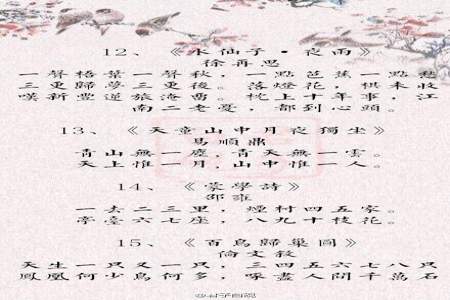 12、《水仙子·夜雨》
徐再思
一聲梧葉一聲秋，一點芭蕉一點愁
三更歸夢三更後。落燈花，棋未收
嘆新豐逆旅淹留。枕上十年事，江
南二老憂，都到心頭。
13、《天童山中月夜獨坐》
馬順鼎
青山無一塵，青天無一雲。
天上惟一月，山中惟一人。
14、《蒙學詩》
邵雍
一去二三里，煙村四五家。
亭臺六七座，八九十枝花。
15、《百鳥歸巢圖》
倫文敘
天生一隻又一隻，三四五六七八隻
鳳凰何少鳥何多，啄盡人間千萬石